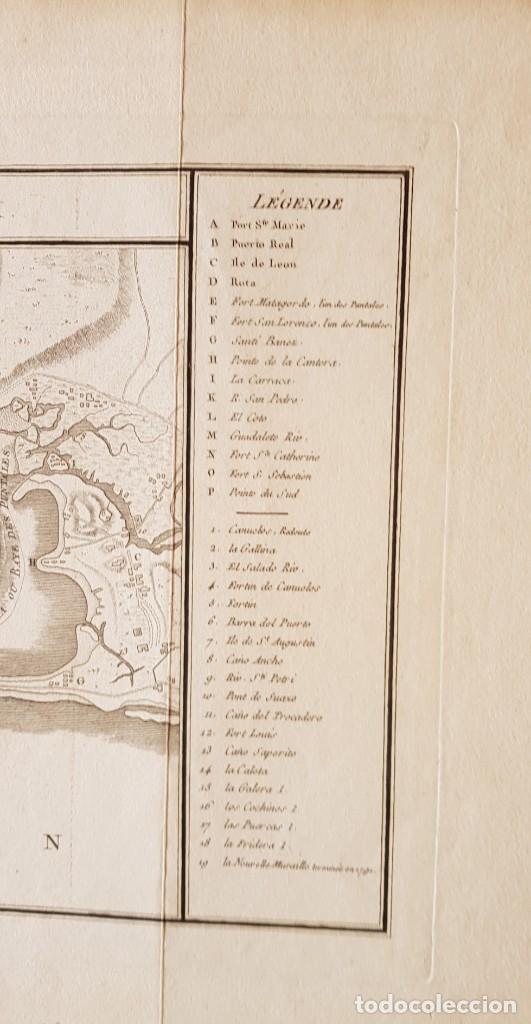 LÉGENDE
A Port Ste Marie
B Puerto Real
C Ile de Leon
D Rota
E Fort Matagordo, l'un des Puntales.
F Fort San Lorenzo, l'un des Puntales.
G Santi Banez
H Pointe de la Cantera
I La Carraca
K R. San Pedro
L El Coto
M Guadalete Riv.
N Fort Ste Catherine
O Fort S. Sebastien
P Pointe du Sud
1. Canuelos, Redoute
2. la Gallina
3. El Salado Riv.
4. Fortin de Canuelos
5. Fortin
6. Barra del Puerto
7. Ile de St Augustin
8. Caño Ancho
9. Riv. Ste Petri
10. Pont de Suaxo
11. Caño del Trocadero
12. Fort Louis
13 Caño Saporito
14 la Calota
15 la Galera I.
16 los Cochinos I.
17 las Puercas I.
18 la Fridera I.
19 la Nouvelle Muraille terminée en 1791.
OU BAYE DES PUNTALES
H
C
G
N
todocoleccion